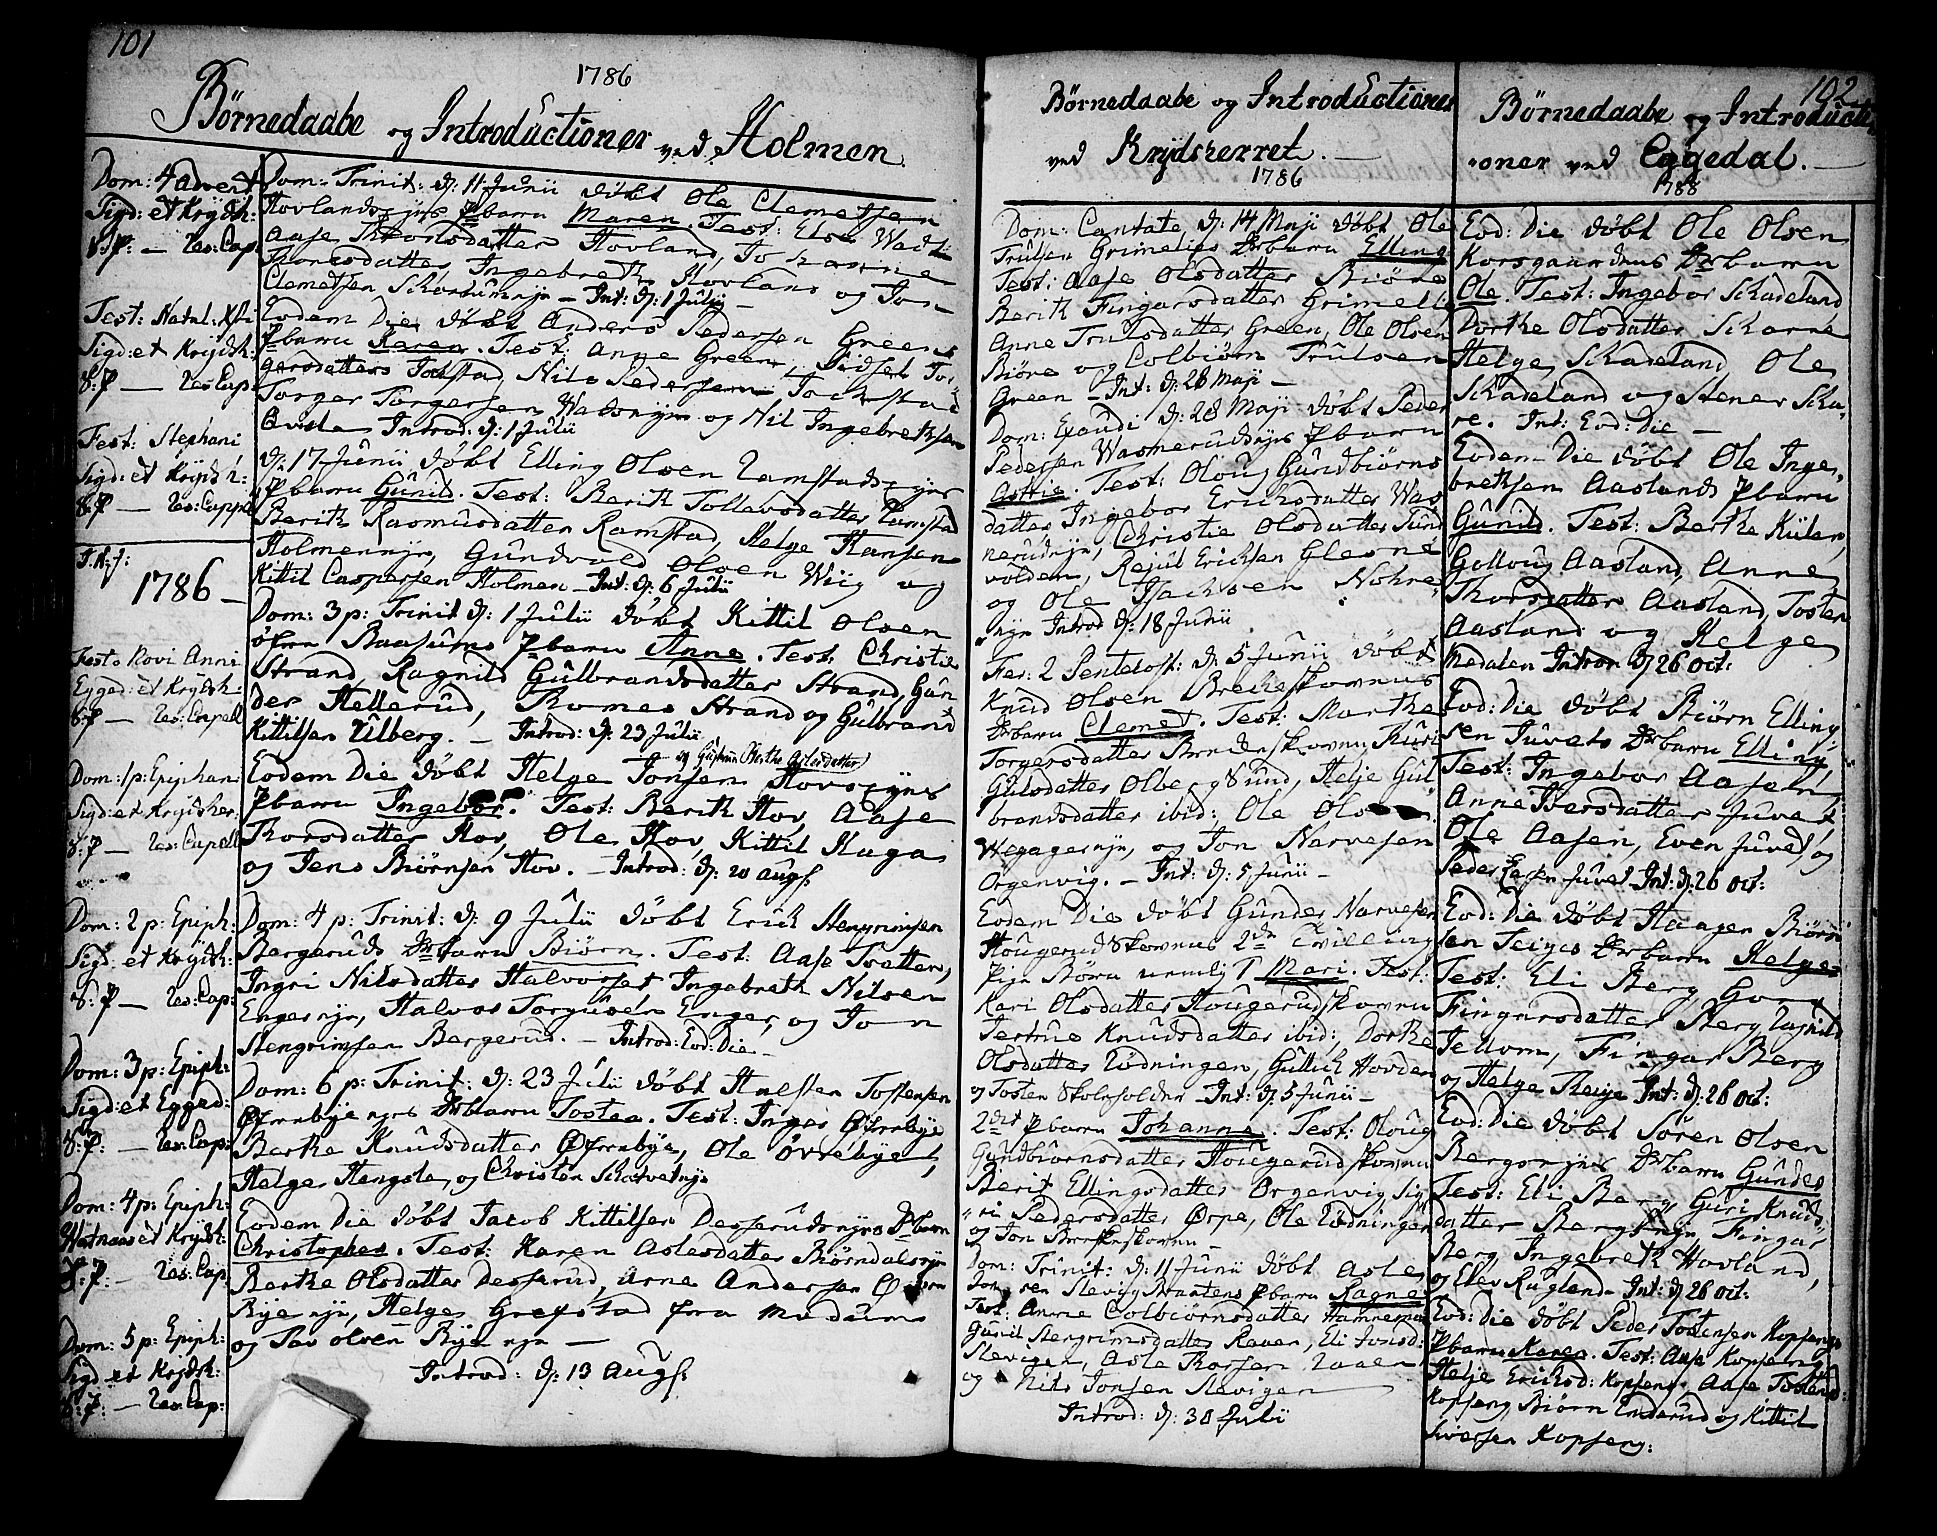 101
1786
Börnedaabe og Introductioner ved Holmen
Dom: 4 Advent
Sigd: et Krydsh:
S: P: — Res: Cap:
Fest: Natal: Xsti
Sigd: et Krydsh:
S: P — Res: Cap:
Fest: Stephani
Sigd: et Krydsh:
S: P — Res: Cappel
I. N. J:
1786 —
Fest: Novi Anni
Egged: et Krydsh
S: P — Res: Capell
Dom: 1 p: Epiphan:
Sigd: et Krydsher:
S: P — Res: Capell
Dom: 2 p: Epiph:
Sigd: et Krydsh:
S: P — Res: Cap:
Dom: 3 p: Epiph:
Sigd: et Egged:
S: P: — Res: Cap:
Dom: 4 p: Epiph:
et Krydsh:
S: P: — Res: Cap
Dom: 5 p: Epiph:
Sigd et Krydsh:
S: P: — Res: Cap:
Dom: Trinit: d: 11 Junii döbt Ole Clemetsen
Hovlandsejes Pbarn Maren. Test: Else
Aase Thorsdatter Hovland,
Thoresdatter Ingebreth Hovland og Jon
Clemetsen — Int: d: 1 Julii —
Eodem Die döbt Anders Pedersen Greens
Pbarn Karen. Test: Anne Green, Sidsel Tor-
gersdatter Nils Pedersen
Torger Torgersen og Nil Ingebrethsen
Introd: d: 1 Julii
d: 17 Junii döbt Elling Olsen Ramstadsejes
Pbarn Gunild. Test: Berith Tollevsdatter Ramstad
Berith Rasmusdatter Ramstad, Helge Hansen
Holmenejn, Gundvald Olsen Wiig og
Kittil Caspersen Holmen — Int: d: 6 Julii
Dom: 3 p: Trinit d: 1 Julii döbt Kittil Olsen
Pbarn Anne. Test: Christie
Strand, Ragnild Gulbrandsdatter Strand, Gun
der Hellerud, Thomes Strand og Gulbrand
Kittilsen Ulberg. — Introd: d: 23 Julii
Eodem Die döbt Helge Jonsen Hovsejes
Pbarn Ingebor. Test: Berith Hov, Aase
Thorsdatter Hov, Ole Hov, Kittil Haga
og Jens Biörnsen Hov. — Introd: d: 20 Augs:
Dom: 4 p: Trinit: d: 9 Julii döbt Erich Stengrimsen
Bergeruds Drbarn Biörn. Test: Aase Tvetten,
Ingri Nilsdatter Ingebreth Nilsen
Engerejn, Halvor Torgusen Enger, og Jon
Stengrimsen Bergerud. — Introd: Eod: Die —
Dom: 6 p: Trinit: d: 23 Julii döbt Halsten Tostensen
Drbarn Tosten. Test: Inger
Berthe Knudsdatter Ole Övrebye,
Helge Hengsle, og Christen
Eodem Die döbt Jacob Kittilsen Desserudsejes Drbarn
Christopher. Test: Karen Aslesdatter Biörndalsejn
Berthe Olsdatter Desserud, Arne Andersen
Bye ejn, Helge Grefstad fra Modum
og Jan Olsen Bye ejn —
Introd: d: 13 Augs:
Börnedaabe og Introductioner
ved Krydsherret. —
1786
Dom: Cantate d: 14 Maji döbt Ole
Trulsen Grimelies Drbarn Elling
Test: Aase Olsdatter Biöre
Berith Fingarsdatter Grimelie
Anne Trulsdatter Green, Ole Olsen
Biöre og Colbiörn Trulsen
Green — Int: d: 28 Maji —
Dom: Exaudi d: 28 Maji döbt Peder
Pedersen Pbarn
Astrie. Test: Oloug Gundbiörns
datter Ingebor Erichsdatter Was
nerudejn, Christie Olsdatter Sund
volden, Rejul Erichsen Glesne
og Ole Isachsen Nohre
ejn Introd d: 18 Junii
Fer: 2 Pentecost: d: 5 Junii döbt
Knud Olsen
Drbarn Clemet. Test: Marthe
Torgersdatter Guri
Gulsdatter Olberg Sund, Helje Gul
brandsdatter ibid: Ole
og Jon Narvesen
Orgenvig. — Int: d: 5 Junii —
Eodem Die döbt Gunder Narvesen
2de Tvilling
Pige Börn nemlig 1 Mari. Test:
Kari Olsdatter Hougerudskovnu
Jertrue Knudsdatter ibid:, Dorthe
Olsdatter Rödningen, Gullich Hovden
og Tosten — Int: d: 5 Junii —
2det Pbarn Johanne. Test: Oloug
Gundbiörnsdatter Hougerudskovnu
Berit Ellingsdatter Orgenvig Sig
ri Pedersdatter Örpe, Ole Rödningen
og Jon —
Dom: Trinit: d: 11 Junii döbt Asle
Pbarn Ragne
Test: Anne Colbiörnsdatter
Gunil Stengrimsdatter Raaen, Eli Jonsd:
Slevigen, Asle Thorsen Raaen
og Nils Jonsen Slevigen
Introd: d: 30 Julii
102
Börnedaabe og Introducti
oner ved Eggedal. —
1788
Eod: Die döbt Ole Olsen
Korsgaardens Drbarn
Ole. Test: Ingebor Skadeland,
Dorthe Olsdatter Skarre
Helge Skadeland, Ole
Skadeland og Stener Ska-
re. Int: Eod: Die —
Eodem Die döbt Ole Inge-
brethsen Aaslands Pbarn
Gunild. Test: Berthe
Golloug Aasland, Anne
Thorsdatter Aasland, Tosten
Aasland og Helge
Medalen Introd d: 26 Oct:
Eod: Die döbt Biörn Elling-
sen Juvets Drbarn Elling.
Test: Ingebor Aasen,
Anne Juvet,
Ole Aasen, Even Juvet, og
Peder Juvet — Int: d: 26 Oct:
Eod: Die döbt Haagen Biörn
sen Teiges Drbarn Helge
Test: Eli Berg
Fingarsdatter Berg Ragnild
Jellom, Fingar Berg
og Helge Teige Int: d: 26 Oct:
Eod: Die döbt Sören Olsen
Bergsejes Drbarn Gunder
Test: Eli Berg, Guri Knuds-
datter Bergsejn, Fingar
Berg Ingebreth Hovland,
og Elev Rugland — Int: d: 26 Oct:
Eod: Die döbt Peder Tostensen Kopseng
Pbarn Karen. Test: Aase Kopseng
Helje Ericksd: Kopseng. Aase Tostensd:
Kopseng, Biörn Enderud og Kittil
Siversen Kopseng: